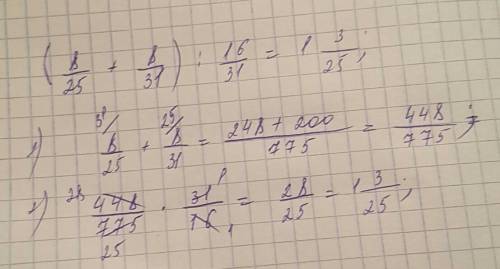 (8/25 + 8/31) : 16/31 = 1 3/25;
1) 8/25 (31/) + 8/31 (25/) = (248 + 200)/775 = 448/775;
2) 448/775 · 31/16 = 28/25 = 1 3/25;